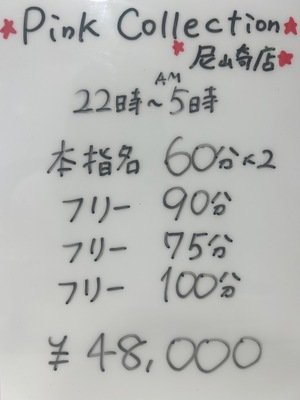 Pink Collection
尼崎店
22時～AM5時
本指名 60分×2
フリー 90分
フリー 75分
フリー 100分
¥48,000